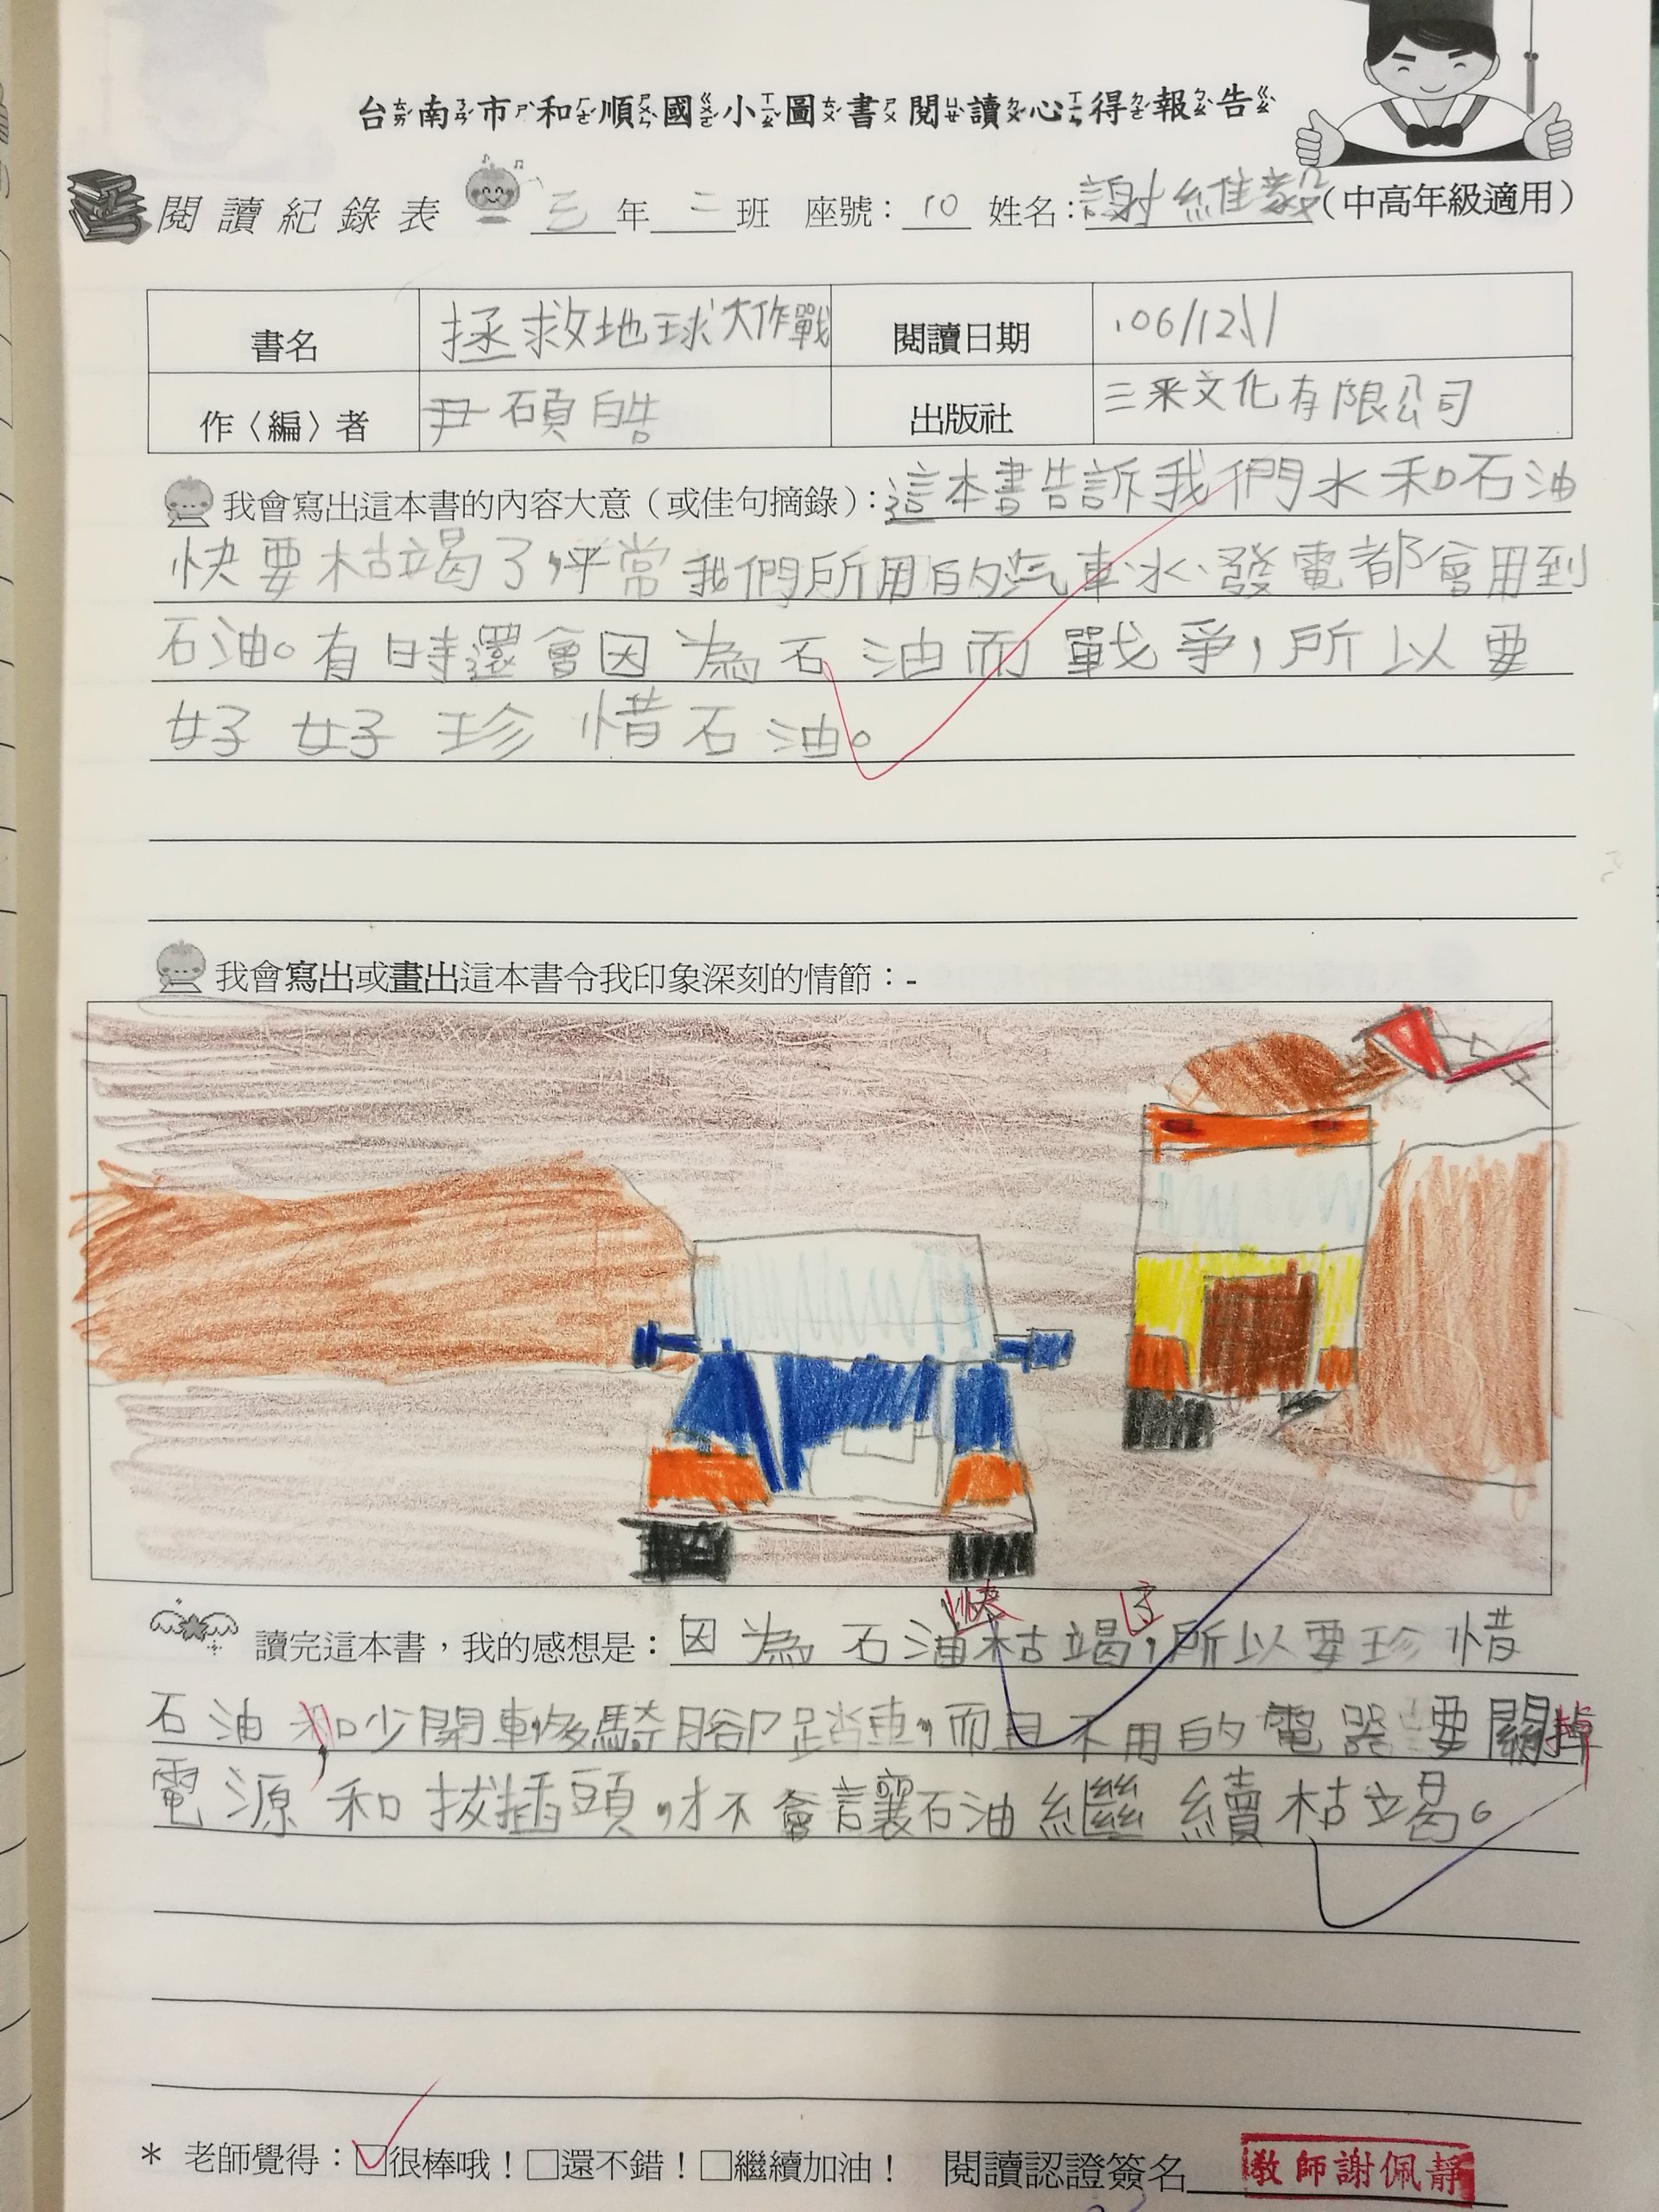 台南市和順國小圖書閱讀心得報告
閱讀紀錄表 三年二班 座號：10 姓名：謝維毅（中高年級適用）
書名 拯救地球大作戰 閱讀日期 106/12/1
作〈編〉者 尹碩皓 出版社 三采文化有限公司
我會寫出這本書的內容大意（或佳句摘錄）：這本書告訴我們水和石油
快要枯竭了，平常我們所用的汽車、水、發電都會用到
石油。有時還會因為石油而戰爭，所以要
好好珍惜石油。
我會寫出或畫出這本書令我印象深刻的情節：-
快 了
讀完這本書，我的感想是：因為石油枯竭，所以要珍惜
石油和少開車多騎腳踏車，而且不用的電器要關掉
電源和拔插頭，才不會讓石油繼續枯竭。
* 老師覺得：☑很棒哦！□還不錯！□繼續加油！ 閱讀認證簽名 教師謝佩靜